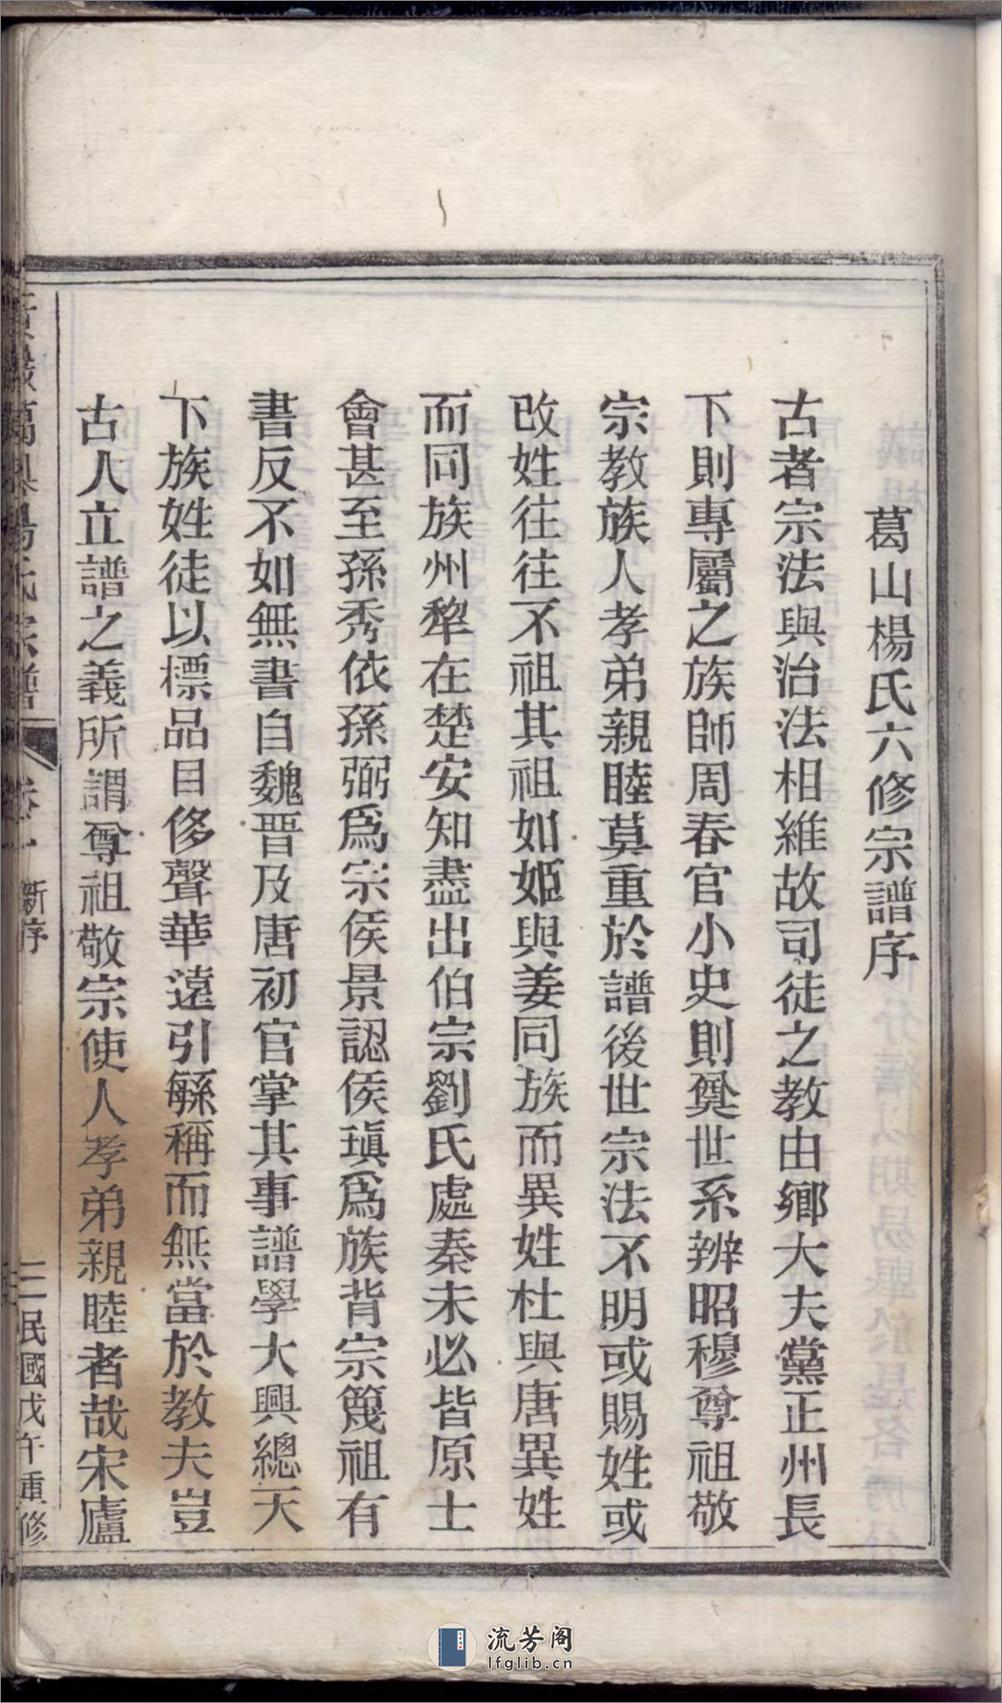 葛山楊氏六修宗譜序
古者宗法與治法相維故司徒之教由鄉大夫黨正州長
下則專屬之族師周春官小史則奠世系辨昭穆尊祖敬
宗教族人孝弟親睦莫重於譜後世宗法不明或賜姓或
改姓往往不祖其祖如姬與姜同族而異姓杜與唐異姓
而同族州犂在楚安知盡出伯宗劉氏處秦未必皆原士
會甚至孫秀依孫弼爲宗侯景認侯瑱爲族背宗篾祖有
書反不如無書自魏晋及唐初官掌其事譜學大興總天
下族姓徒以標品目侈聲華遠引緐稱而無當於教夫豈
古人立譜之義所謂尊祖敬宗使人孝弟親睦者哉宋廬
楊氏宗譜
卷一
新序
民國戊午重修
流芳阁
lfglib.cn